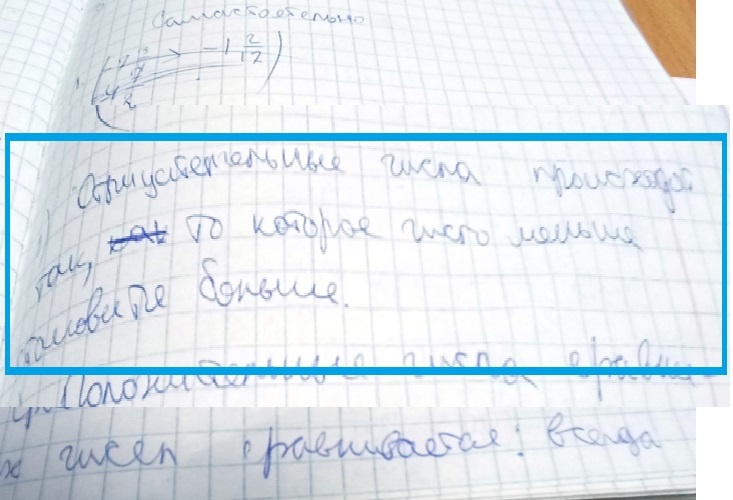 Самастоятельно
> -1 2/12
Отрицательные числа происходят
так, то которое число меньше
становите больше.
Положительные числа сравни
х чисел сравнивается: всегда